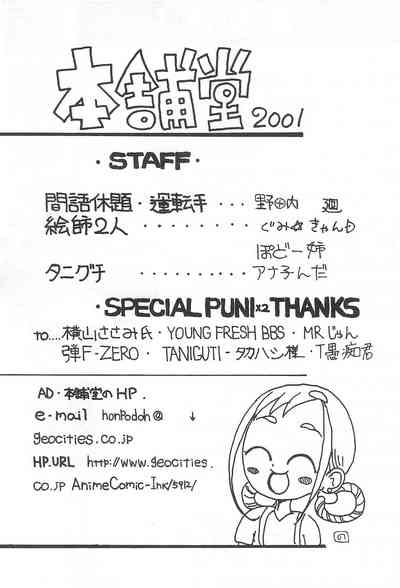 本舗堂 2001
・STAFF・
閑話休題・運転手 ･･･ 野田内 廻
絵師2人 ･･･････ ぐみ☆きゃんD
ぽどー姉
タニグチ ･････････ アナ子んだ
・SPECIAL PUNI×2 THANKS
to....横山ささみ氏・YOUNG FRESH BBS・MRじゅん
弾F-ZERO・TANIGUTI-タカハシ様・T愚痴君
AD・本舗堂のHP.
e-mail honPodoh@ ↓
geocities.co.jp
HP.URL http://www.geocities.
co.jp AnimeComic-Ink/5912/